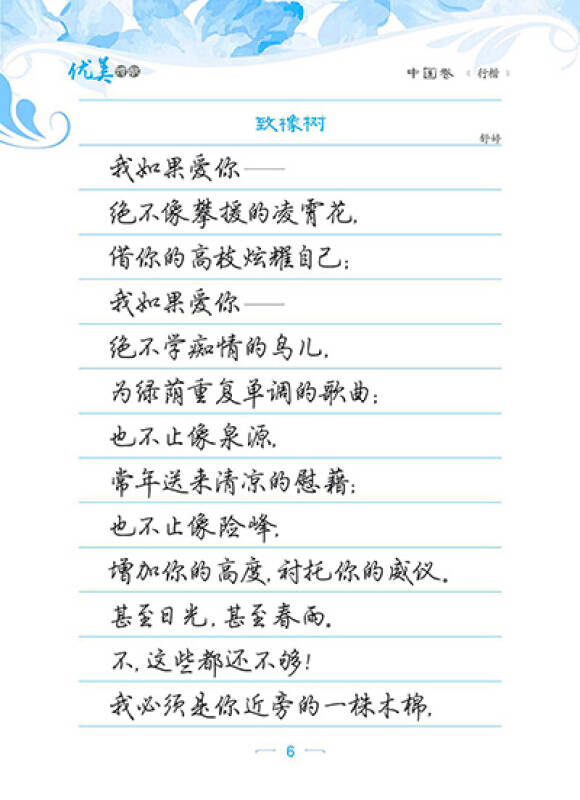 优美
中国卷《行楷》
致橡树
舒婷
我如果爱你——
绝不像攀援的凌霄花,
借你的高枝炫耀自己;
我如果爱你——
绝不学痴情的鸟儿,
为绿荫重复单调的歌曲;
也不止像泉源,
常年送来清凉的慰藉;
也不止像险峰,
增加你的高度,衬托你的威仪。
甚至日光,甚至春雨。
不,这些都还不够!
我必须是你近旁的一株木棉,
6